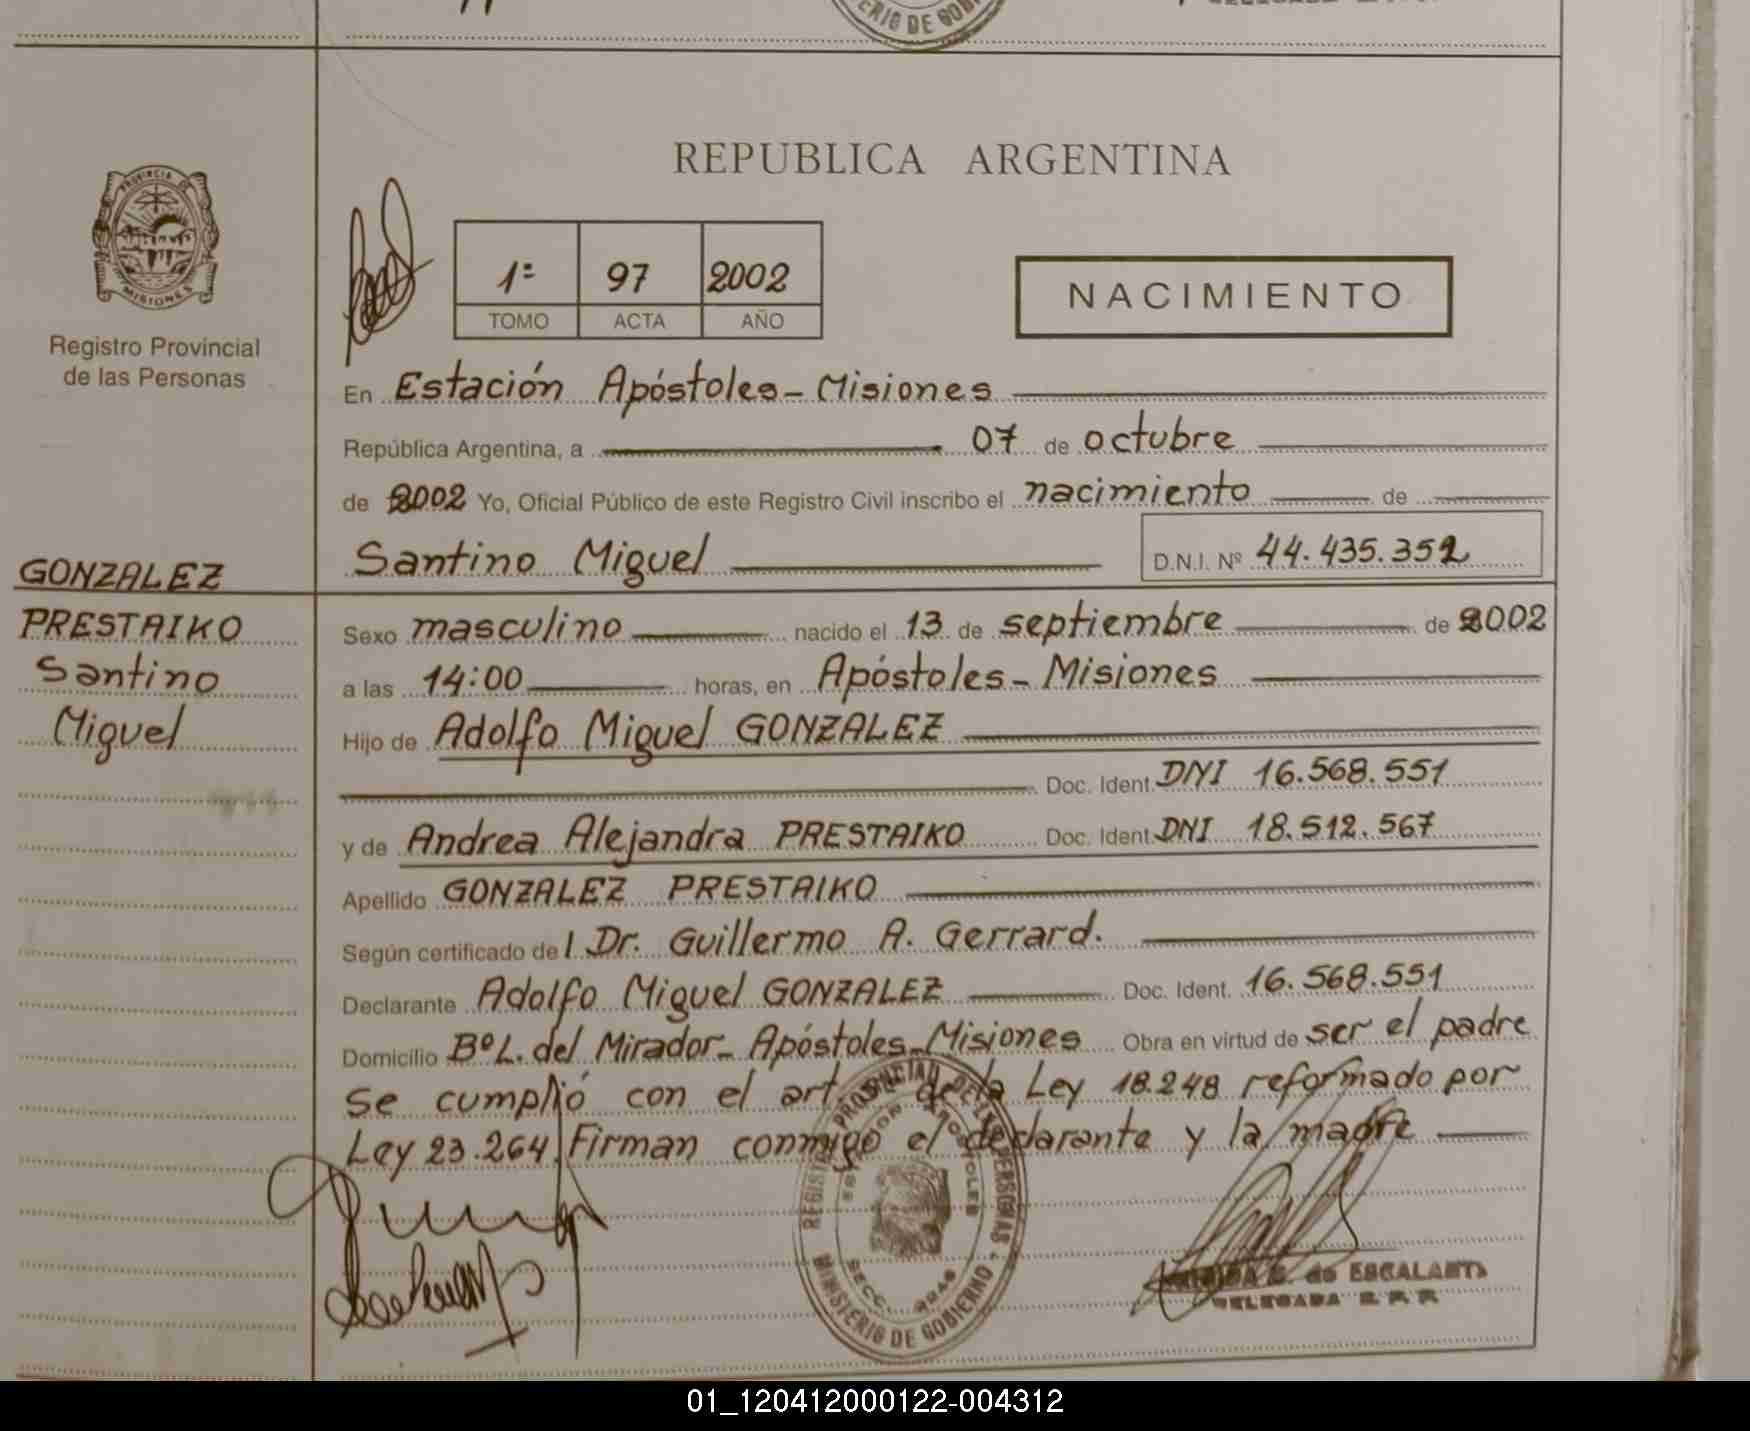 REPUBLICA ARGENTINA
PROVINCIA DE
MISIONES
Registro Provincial
de las Personas
1º 97 2002
TOMO ACTA AÑO
NACIMIENTO
En Estación Apóstoles - Misiones
República Argentina, a 07 de octubre
de 2002 Yo, Oficial Público de este Registro Civil inscribo el nacimiento de
Santino Miguel D.N.I. Nº 44.435.352
GONZALEZ
PRESTAIKO
Santino
Miguel
Sexo masculino nacido el 13 de septiembre de 2002
a las 14:00 horas, en Apóstoles - Misiones
Hijo de Adolfo Miguel GONZALEZ
Doc. Ident. DNI 16.568.551
y de Andrea Alejandra PRESTAIKO Doc. Ident. DNI 18.512.567
Apellido GONZALEZ PRESTAIKO
Según certificado del Dr. Guillermo A. Gerrard.
Declarante Adolfo Miguel GONZALEZ Doc. Ident. 16.568.551
Domicilio Bº L. del Mirador - Apóstoles - Misiones Obra en virtud de ser el padre
Se cumplió con el art. de la Ley 18.248 reformado por
Ley 23.264. Firman conmigo el declarante y la madre
REGISTRO PROVINCIAL DE LAS PERSONAS
MINISTERIO DE GOBIERNO
de ESCALANTE
DELEGADA R. P. P.
01_120412000122-004312